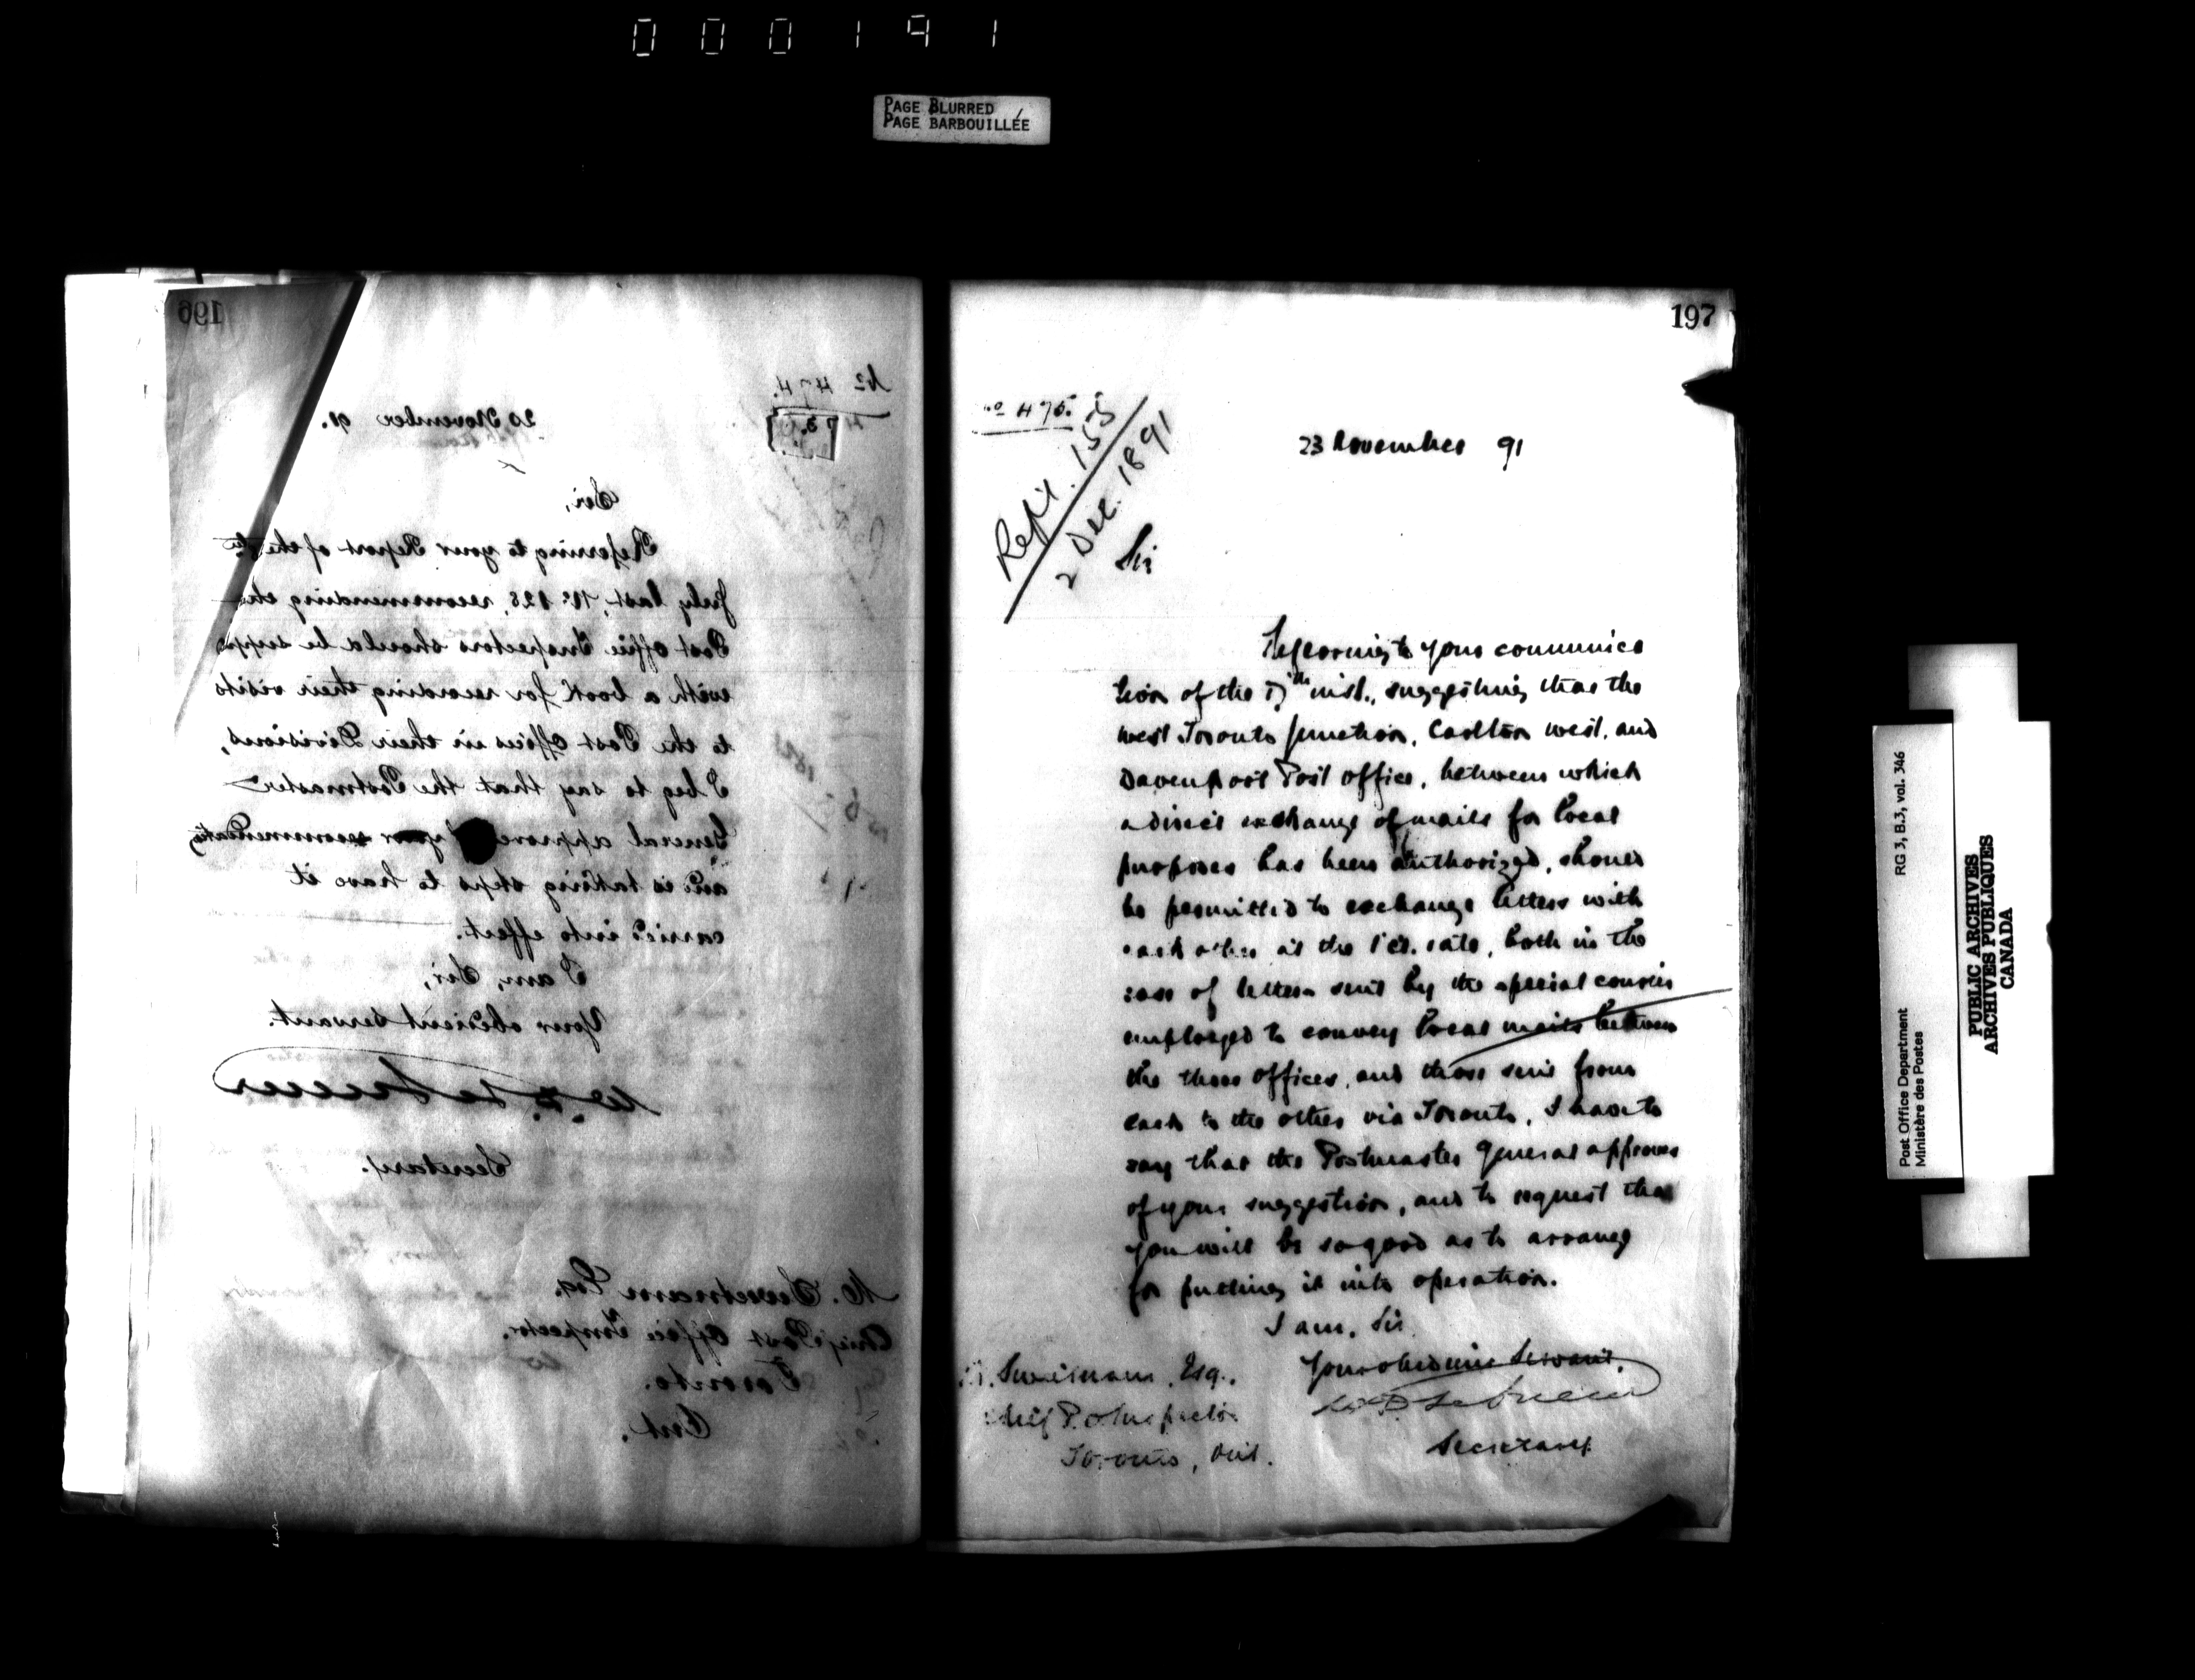 000191
PAGE BLURRED
PAGE BARBOUILLÉE
196
No 474.
20 November 91.
Sir,
Referring to your Report of the
July last, No 128, recommending the
Post Office Inspectors should be
with a book for recording their visits
to the Post Offices in their Divisions,
I beg to say that the Postmaster
General approves your recommendation
and is taking steps to have it
carried into effect.
I am, Sir,
Your obedient servant.
Secretary.
M. Sweetnam Esq.
Chief Post Office Inspector.
Toronto.
Ont.
197
No 475.
Rep'd. 153
2 Dec. 1891
23 November 91
Sir
Referring to your communica
tion of the inst., suggesting that the
West Toronto Junction, Carlton West, and
Davenport Post Office, between which
a direct exchange of mails for local
purposes has been authorized, should
be permitted to exchange letters with
each other at the 1 ct. rate, both in the
case of letters sent by the special courier
employed to convey local mails between
the three offices, and those sent from
each to the other via Toronto, I have to
say that the Postmaster General approves
of your suggestion, and to request that
you will be so good as to arrange
for putting it into operation.
I am, Sir
Your obedient Servant,
Secretary
M. Sweetnam, Esq.,
Chief P.O. Inspector
Toronto, Ont.
Post Office Department RG 3, B.3, vol. 346
Ministère des Postes
PUBLIC ARCHIVES
ARCHIVES PUBLIQUES
CANADA